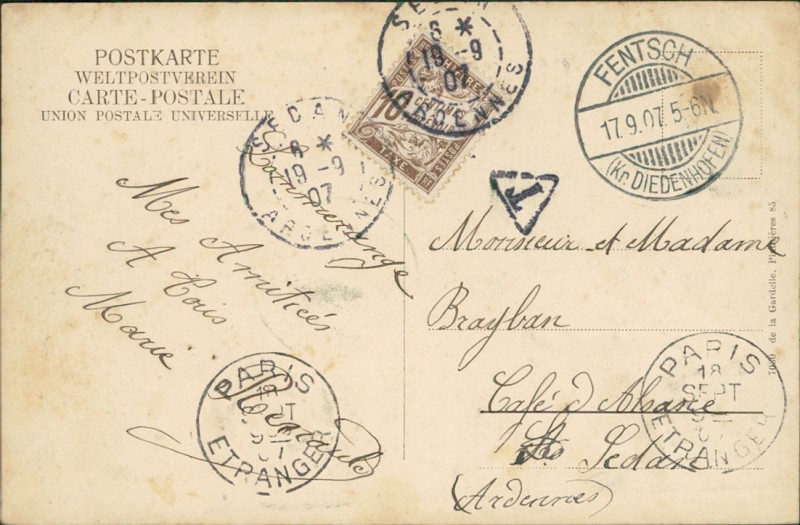 POSTKARTE
WELTPOSTVEREIN
CARTE-POSTALE
UNION POSTALE UNIVERSELLE
SEDAN
6 *
19 -9
07
ARDENNES
SEDAN
6 *
19 -9
07
ARDENNES
10
TAXE
T
FENTSCH
17.9.07. 5-6N.
(Kr. DIEDENHOFEN)
Mes Amitiées
A Tous
Marie
Monsieur et Madame
Brayban
Café d'Alsace
Sedan
(Ardennes)
PARIS
ETRANGER
PARIS
18
SEPT
ETRANGER
de la Gardelle,
85